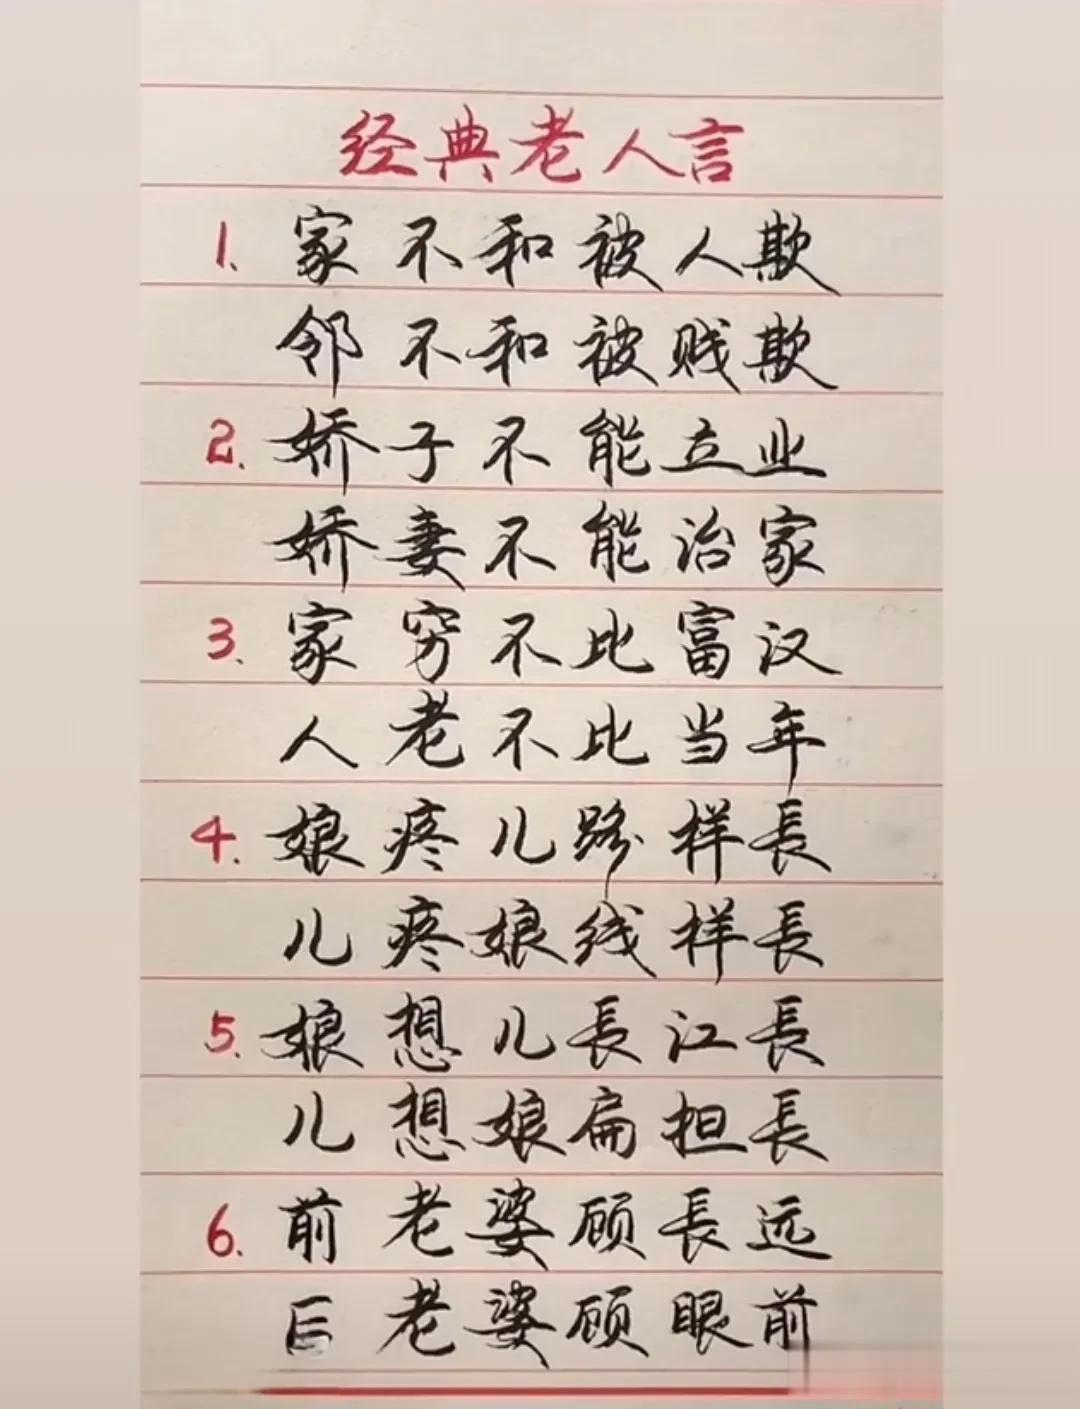 经典老人言
1. 家不和被人欺
邻不和被贱欺
2. 娇子不能立业
娇妻不能治家
3. 家穷不比富汉
人老不比当年
4. 娘疼儿路样長
儿疼娘线样長
5. 娘想儿長江長
儿想娘扁担長
6. 前老婆顾長远
后老婆顾眼前